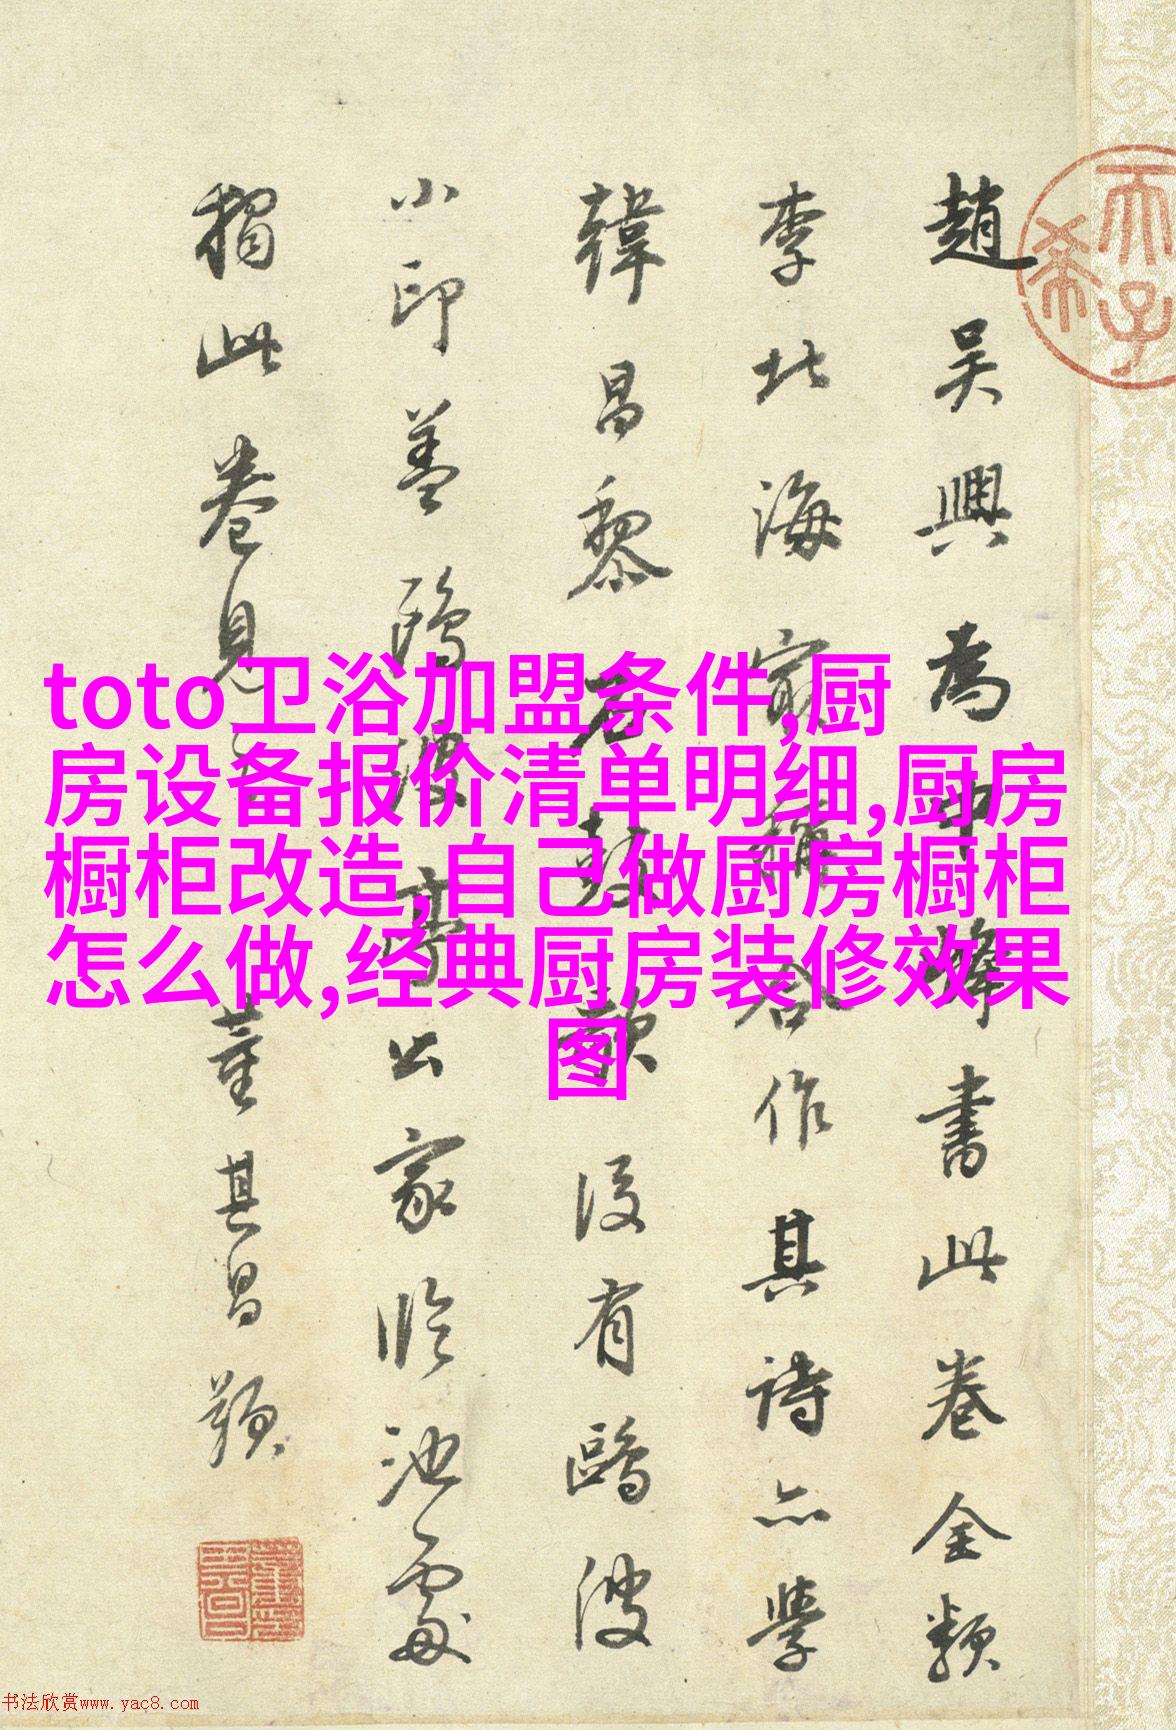 趙吳興為中峰書此卷全類
李北海最稱合作其詩亦學
韓昌黎石鼓歌後有鷗波
小印蓋鷗波亭公家臨池處
獨此卷見
董其昌題
天子
希
toto卫浴加盟条件,厨
房设备报价清单明细,厨房
橱柜改造,自己做厨房橱柜
怎么做,经典厨房装修效果
图
书法欣赏www.yac8.com